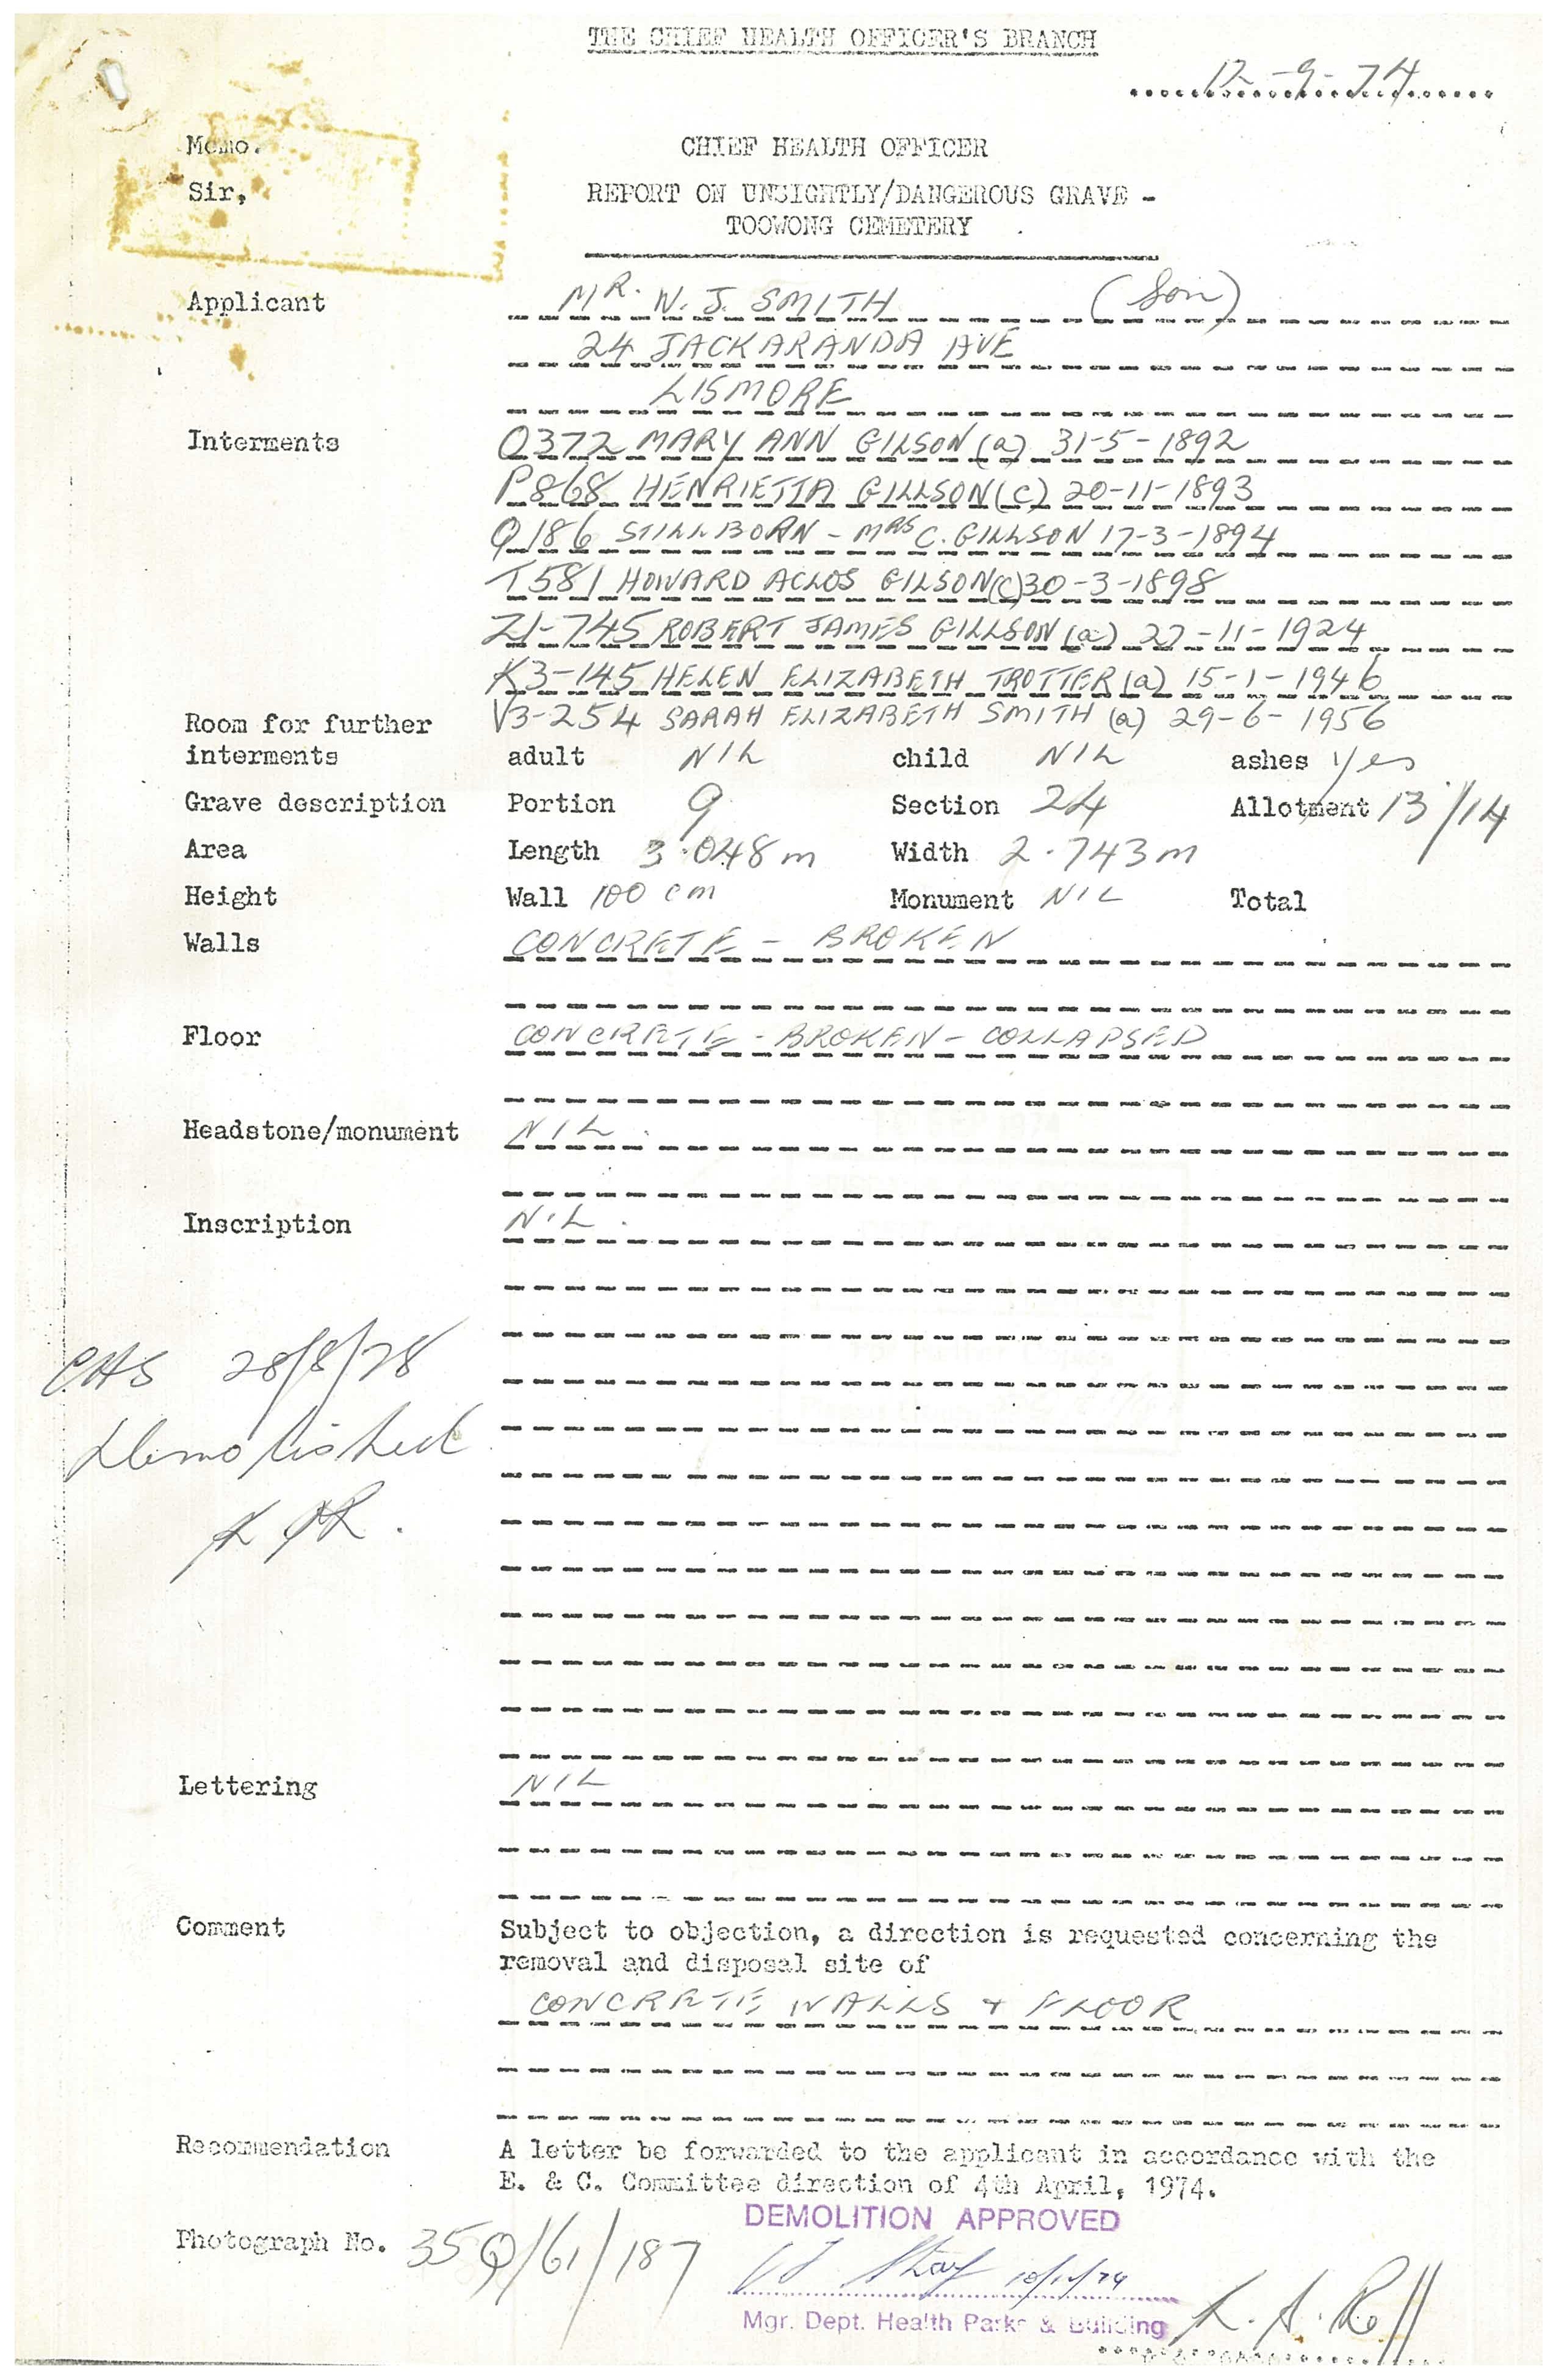 THE CHIEF HEALTH OFFICER'S BRANCH
12-9-74
Memo.
CHIEF HEALTH OFFICER
Sir,
REPORT ON UNSIGHTLY/DANGEROUS GRAVE -
TOOWONG CEMETERY
Applicant MR. N. J. SMITH (Son)
24 JACKARANDA AVE
LISMORE
Interments O372 MARY ANN GILSON (a) 31-5-1892
P868 HENRIETTA GILLSON (C) 20-11-1893
Q186 STILLBORN - MRS C. GILLSON 17-3-1894
T581 HOWARD ACLOS GILSON (C) 30-3-1898
Z1-745 ROBERT JAMES GILLSON (a) 27-11-1924
K3-145 HELEN ELIZABETH TROTTER (a) 15-1-1946
Room for further V3-254 SARAH ELIZABETH SMITH (a) 29-6-1956
interments adult NIL child NIL ashes yes
Grave description Portion 9 Section 24 Allotment 13/14
Area Length 3.048 m Width 2.743 m
Height Wall 100 cm Monument NIL Total
Walls CONCRETE - BROKEN
Floor CONCRETE - BROKEN - COLLAPSED
Headstone/monument NIL.
Inscription NIL.
CAS 28/8/78
Demolished
Lettering NIL
Comment Subject to objection, a direction is requested concerning the
removal and disposal site of
CONCRETE WALLS + FLOOR
Recommendation A letter be forwarded to the applicant in accordance with the
E. & C. Committee direction of 4th April, 1974.
DEMOLITION APPROVED
Photograph No. 35Q/61/187
10/12/74
Mgr. Dept. Health Parks & Building